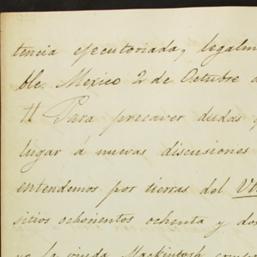 tencia ejecutoriada, legalm
ble. Mexico 2 de Octubre
Para precaver dudas y
lugar á nuevas discusiones
entendemos por tierras del
sitios ochocientos ochenta y dos
yo la viuda Mackintosh